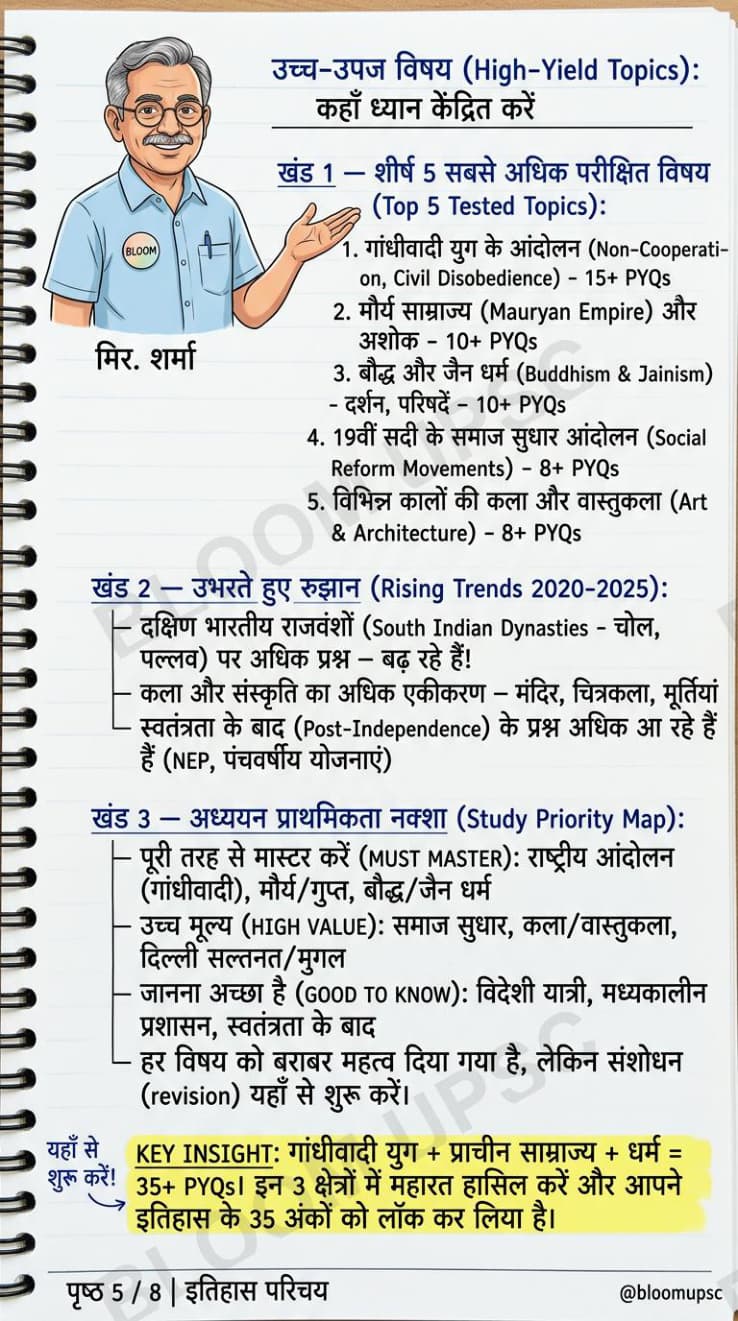 उच्च-उपज विषय (High-Yield Topics):
कहाँ ध्यान केंद्रित करें
खंड 1 – शीर्ष 5 सबसे अधिक परीक्षित विषय
(Top 5 Tested Topics):
BLOOM
मिर. शर्मा
1. गांधीवादी युग के आंदोलन (Non-Cooperati-
on, Civil Disobedience) – 15+ PYQs
2. मौर्य साम्राज्य (Mauryan Empire) और
अशोक – 10+ PYQs
3. बौद्ध और जैन धर्म (Buddhism & Jainism)
– दर्शन, परिषदें – 10+ PYQs
4. 19वीं सदी के समाज सुधार आंदोलन (Social
Reform Movements) – 8+ PYQs
5. विभिन्न कालों की कला और वास्तुकला (Art
& Architecture) – 8+ PYQs
खंड 2 – उभरते हुए रुझान (Rising Trends 2020-2025):
दक्षिण भारतीय राजवंशों (South Indian Dynasties – चोल,
पल्लव) पर अधिक प्रश्न – बढ़ रहे हैं!
कला और संस्कृति का अधिक एकीकरण – मंदिर, चित्रकला, मूर्तियां
स्वतंत्रता के बाद (Post-Independence) के प्रश्न अधिक आ रहे हैं
हैं (NEP, पंचवर्षीय योजनाएं)
खंड 3 – अध्ययन प्राथमिकता नक्शा (Study Priority Map):
पूरी तरह से मास्टर करें (MUST MASTER): राष्ट्रीय आंदोलन
(गांधीवादी), मौर्य/गुप्त, बौद्ध/जैन धर्म
उच्च मूल्य (HIGH VALUE): समाज सुधार, कला/वास्तुकला,
दिल्ली सल्तनत/मुगल
जानना अच्छा है (GOOD TO KNOW): विदेशी यात्री, मध्यकालीन
प्रशासन, स्वतंत्रता के बाद
हर विषय को बराबर महत्व दिया गया है, लेकिन संशोधन
(revision) यहाँ से शुरू करें।
यहाँ से
शुरू करें!
KEY INSIGHT: गांधीवादी युग + प्राचीन साम्राज्य + धर्म =
35+ PYQs। इन 3 क्षेत्रों में महारत हासिल करें और आपने
इतिहास के 35 अंकों को लॉक कर लिया है।
पृष्ठ 5 / 8 | इतिहास परिचय
@bloomupsc
BLOOM UPSC
BLOOM UPSC